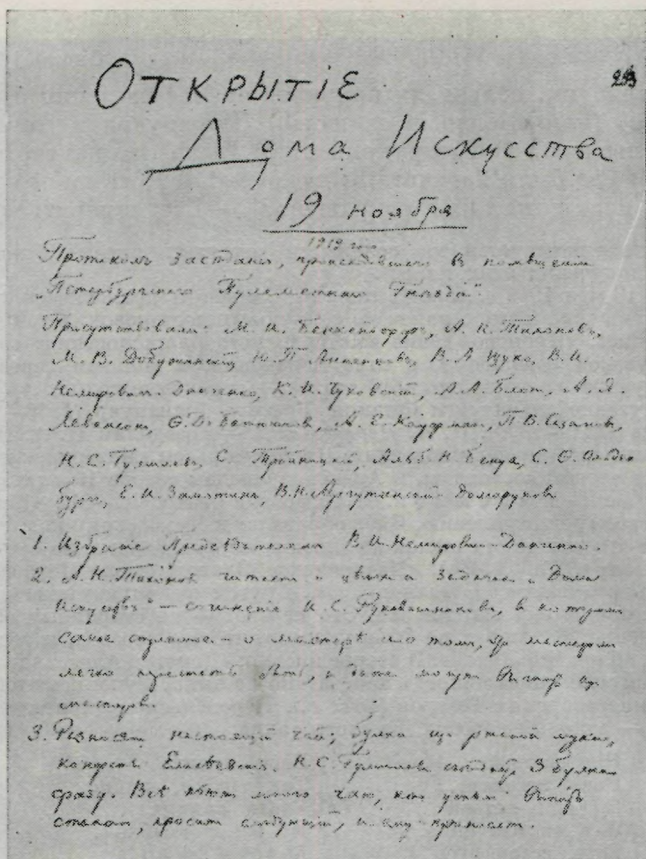 Открытіе
29
Дома Искусства
19 ноября
1919 года
Протоколъ засѣданія, происходившаго въ помѣщеніи
Присутствовали: М. И. Бенкендорфъ, А. Н. Тихоновъ,
М. В. Добужинскій, Ю. П. Анненковъ, В. А. Щуко, В. И.
Немировичъ-Данченко, К. И. Чуковскій, А. А. Блокъ, А. Я.
Левинсонъ, Ѳ. Д. Батюшковъ, А. Е. Кауфманъ, П. В. Сазоновъ,
Н. С. Гумилевъ, С. Тройницкій, Альб. Н. Бенуа, С. Ѳ. Ольден
бургъ, Е. И. Замятинъ, В. Н. Аргутинскій-Долгоруковъ
1. Избраніе Предсѣдателемъ В. И. Немировича-Данченко.
2. А. Н. Тихоновъ читаетъ о цѣляхъ и задачахъ "Дома
Искусствъ" — сочиненіе И. С. Рукавишникова, в которомъ
самое — о и о томъ, что
легко и даже могутъ
3. Разносятъ настоящій чай; булки изъ ржаной муки,
конфеты Елисѣевскія. Н. С. Гумилевъ 3 булки
сразу. Всѣ пьютъ много чаю, кто успѣлъ выпить
стаканъ, проситъ слѣдующій, и ему приносятъ.